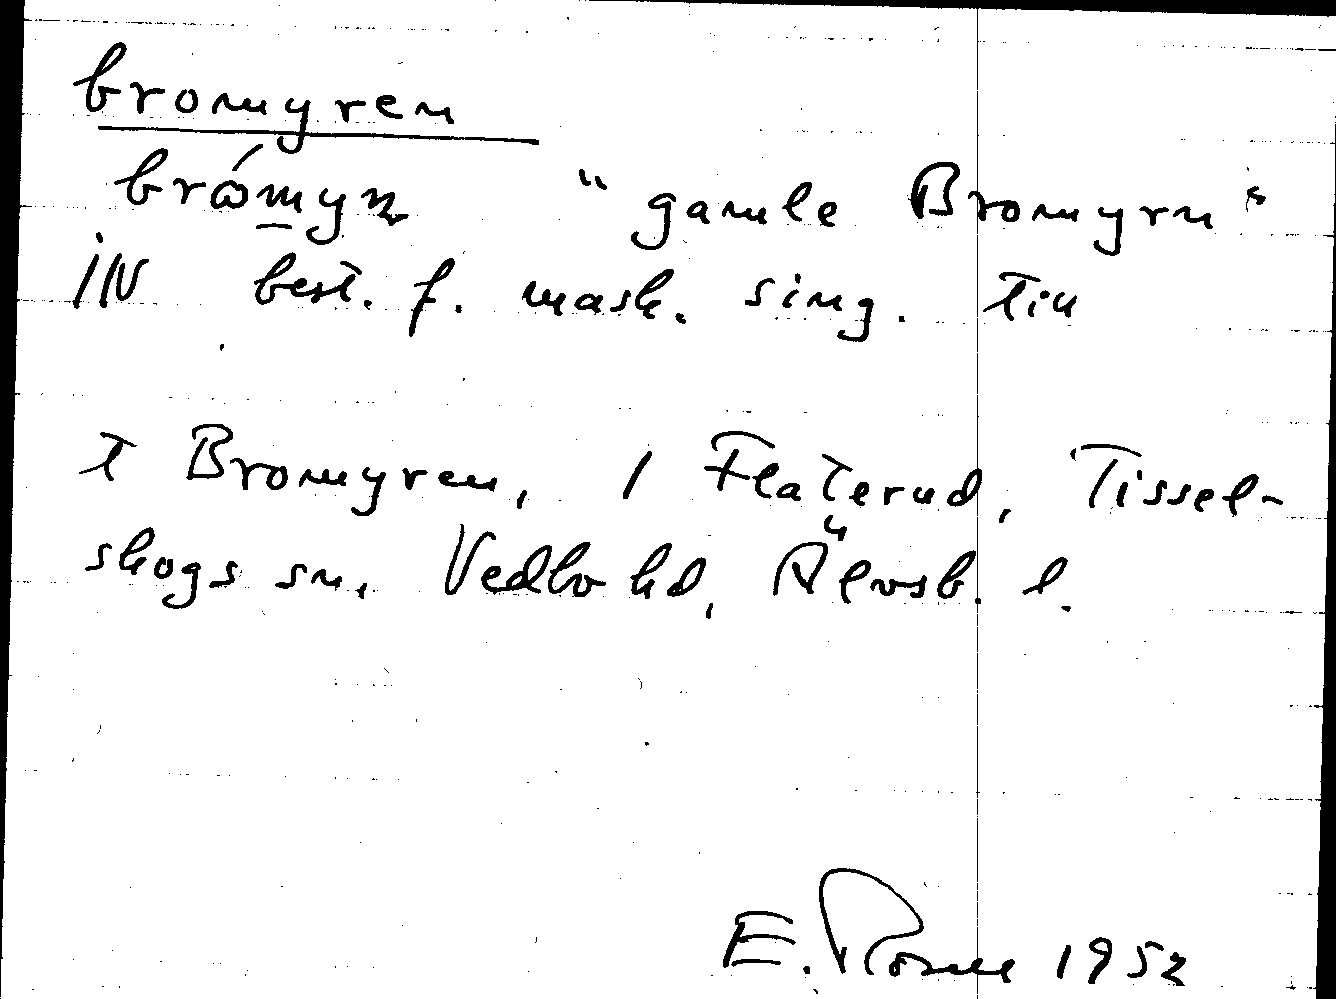 bromyren
brómyn "gamle Bromyrn"
IN best. f. mask. sing. till
t Bromyren, 1 Flaterud, Tissel-
skogs sn, Vedbo hd, Älvsb. l.
E. 1952